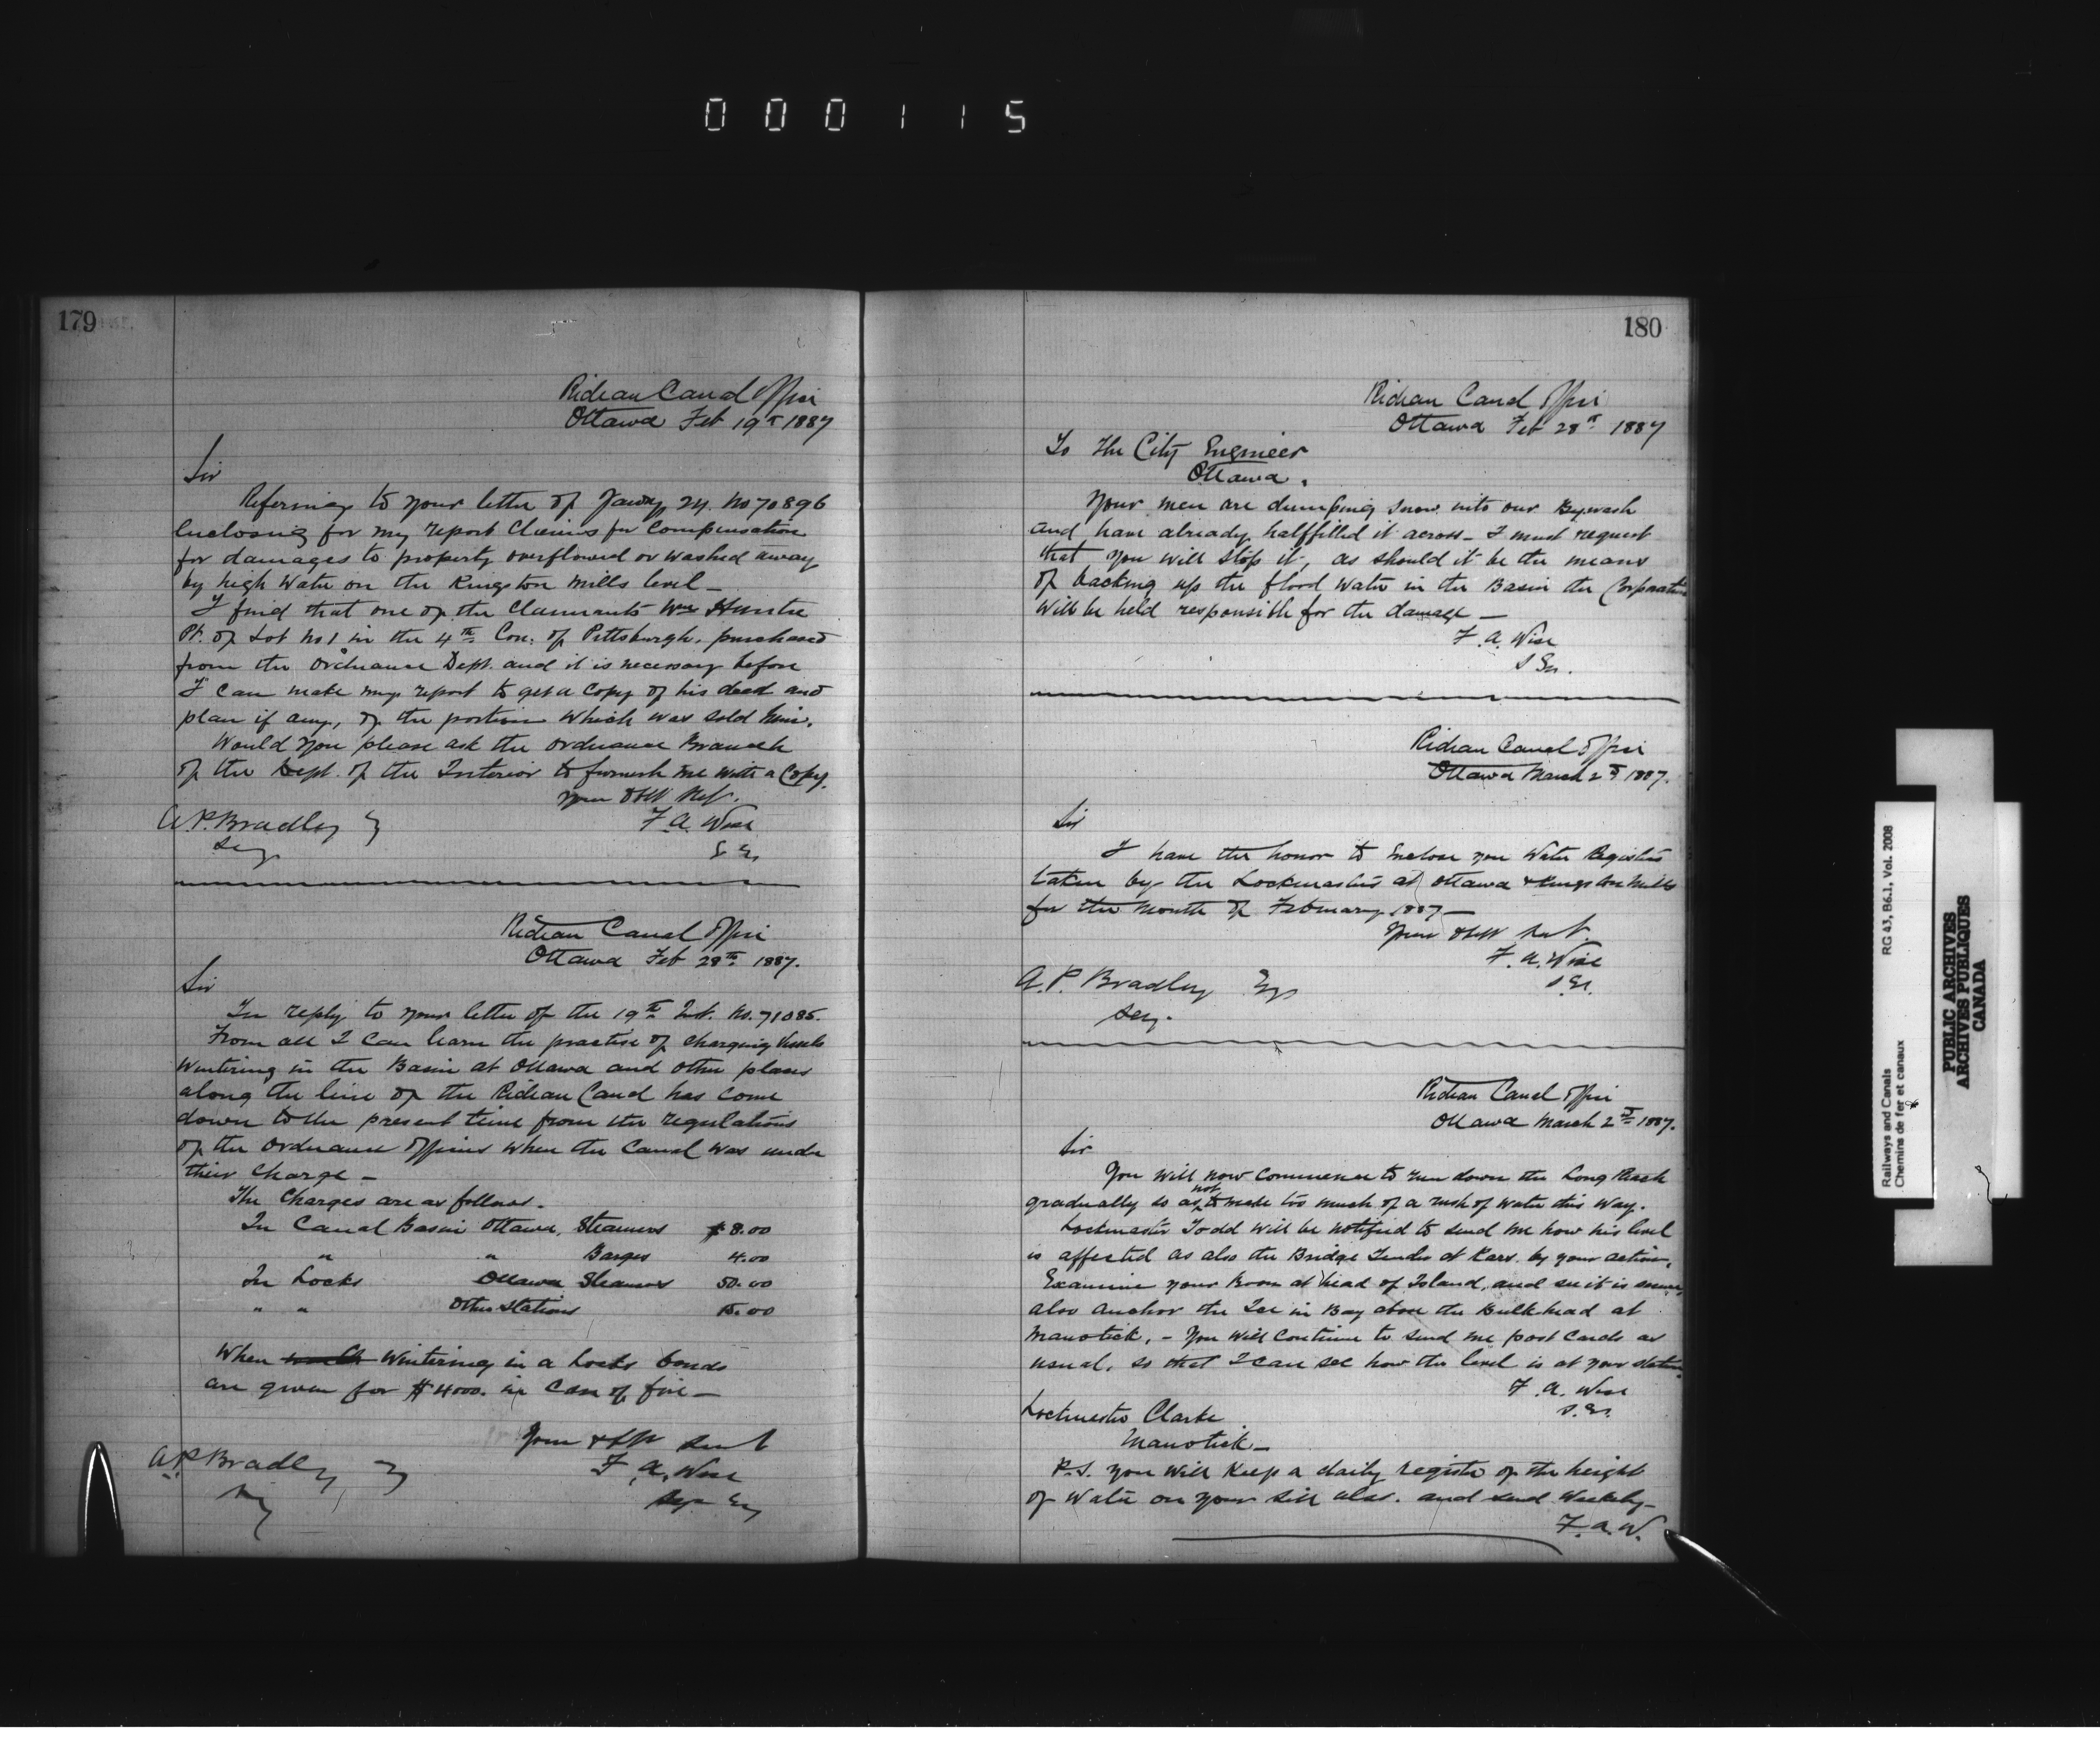 000115
179
Rideau Canal Office
Ottawa Feb 19th 1887
Sir
Refering to your letter of Jany 24. No 70896
Enclosing for my report Claims for Compensation
for damages to property overflowed or washed away
by high Water on the Kingston Mills level —
I find that one of the Claimants Wm Huntre
Pt. of Lot No 1 in the 4th Con: of Pittsburgh, purchased
from the Ordnance Dept. and it is necessary before
I can make my report to get a Copy of his deed and
plan if any, of the portion which was sold him.
Would you please ask the Ordnance Branch
of the Dept. of the Interior to furnish me with a Copy.
Your Obt
F. A. Wise
S En
A. P. Bradley
Secy
Rideau Canal Office
Ottawa Feb 28th 1887.
Sir
In reply to your letter of the 19th Inst. No. 71085.
From all I can learn the practise of charging Vessels
Wintering in the Basin at Ottawa and other places
along the line of the Rideau Canal has come
down to the present time from the regulations
of the Ordnance Officers when the Canal was under
their Charge —
The Charges are as follows.
In Canal Basin Ottawa, Steamers $8.00
" " Barges 4.00
In Locks Ottawa Steamers 50.00
" " Other Stations 15.00
When Wintering in a Locks bonds
are given for $4000. in Case of fire —
Your Obt Servt
F. A. Wise
Sup En
A. P. Bradley
Secy
180
Rideau Canal Office
Ottawa Feb 28th 1887
To The City Engineer
Ottawa.
Your men are dumping snow into our Bywash
and have already halffilled it across — I must request
that you will stop it, as should it be the means
of backing up the flood water in the Basin the Corporation
Will be held responsible for the damage —
F. A. Wise
S En.
Rideau Canal Office
Ottawa March 2nd 1887.
Sir
I have the honor to Enclose you Water Registers
taken by the Lockmasters at Ottawa & Kingston Mills
for the Month of February 1887 —
Your Obt Servt.
F. A. Wise
S. En.
A. P. Bradley Esq
Secy.
Rideau Canal Office
Ottawa March 2nd 1887.
Sir
You will now commence to run down the Long Reach
gradually so as not to make too much of a rush of water this way.
Lockmaster Todd will be notified to send me how his level
is affected as also the Bridge Tender at Kars. by your action.
Examine your Boom at head of Island, and see it is secure,
also anchor the Ice in Bay above the Bulkhead at
Manotick. — You will Continue to send me post Cards as
usual, so that I can see how the level is at your station
F. A. Wise
S. En.
Lockmaster Clarke
Manotick —
P.S. You will Keep a daily register of the height
of Water on your Sill also. and send Weekly —
F. A. W.
Railways and Canals RG 43, B6.1, Vol. 2008
Chemins de fer et canaux
PUBLIC ARCHIVES
ARCHIVES PUBLIQUES
CANADA